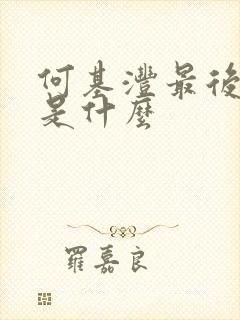 何基灃最後
是什麼
羅嘉良